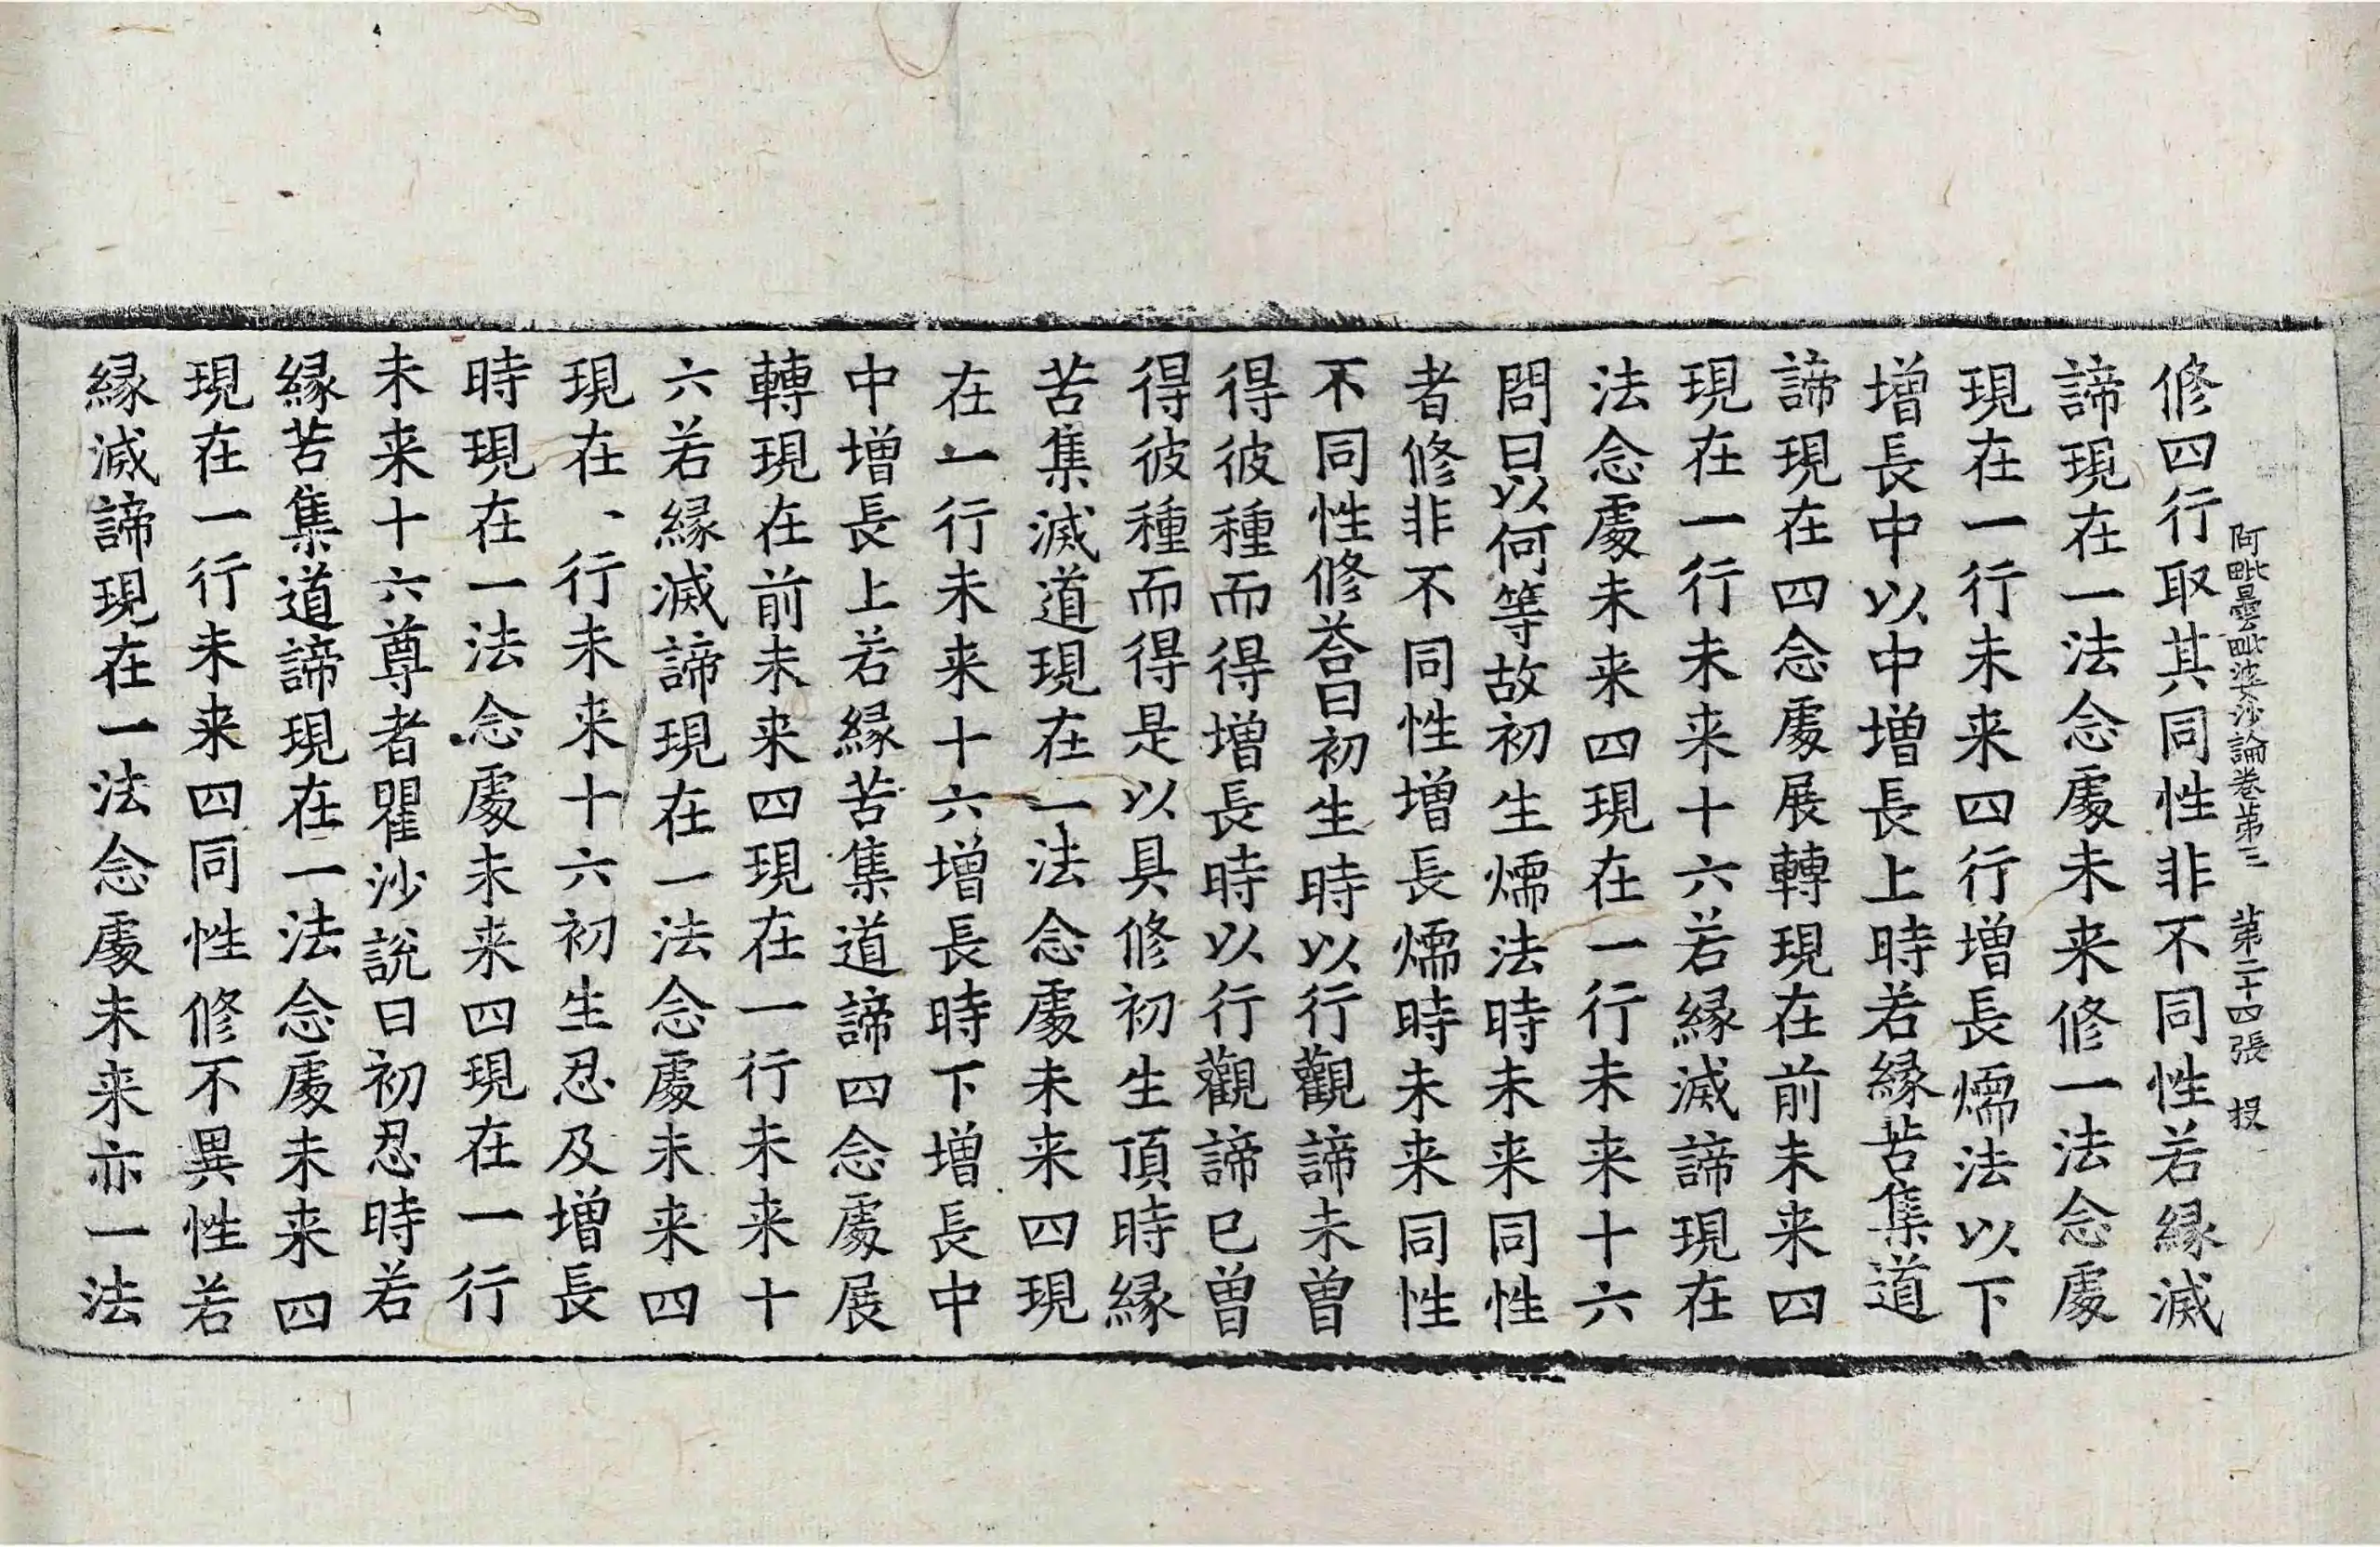 阿毗曇毗婆沙論卷苐三　苐二十四張　投
修四行取其同性非不同性若緣滅
諦現在一法念處未来修一法念處
現在一行未来四行增長煗法以下
增長中以中增長上時若緣苦集道
諦現在四念處展轉現在前未来四
現在一行未来十六若緣滅諦現在
法念處未来四現在一行未来十六
問曰以何等故初生煗法時未来同性
者修非不同性增長煗時未来同性
不同性修荅曰初生時以行觀諦未曾
得彼種而得增長時以行觀諦已曾
得彼種而得是以具修初生頂時緣
苦集滅道現在一法念處未来四現
在一行未来十六增長時下增長中
中增長上若緣苦集道諦四念處展
轉現在前未来四現在一行未来十
六若緣滅諦現在一法念處未来四
現在一行未来十六初生忍及增長
時現在一法念處未来四現在一行
未来十六尊者瞿沙說曰初忍時若
緣苦集道諦現在一法念處未来四
現在一行未来四同性修不異性若
緣滅諦現在一法念處未来亦一法